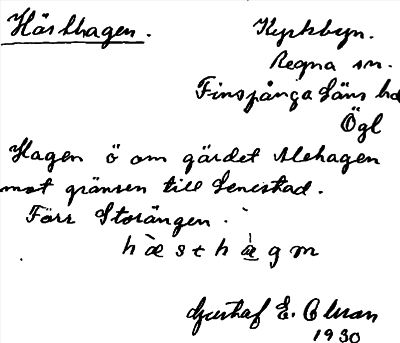 Hästhagen.
Kyrkbyn.
Regna sn.
Finspånga Läns hd
Ögl
Hagen ö om gärdet Alehagen
mot gränsen till
Förr Storängen.
Gustaf E. Olsson
1930